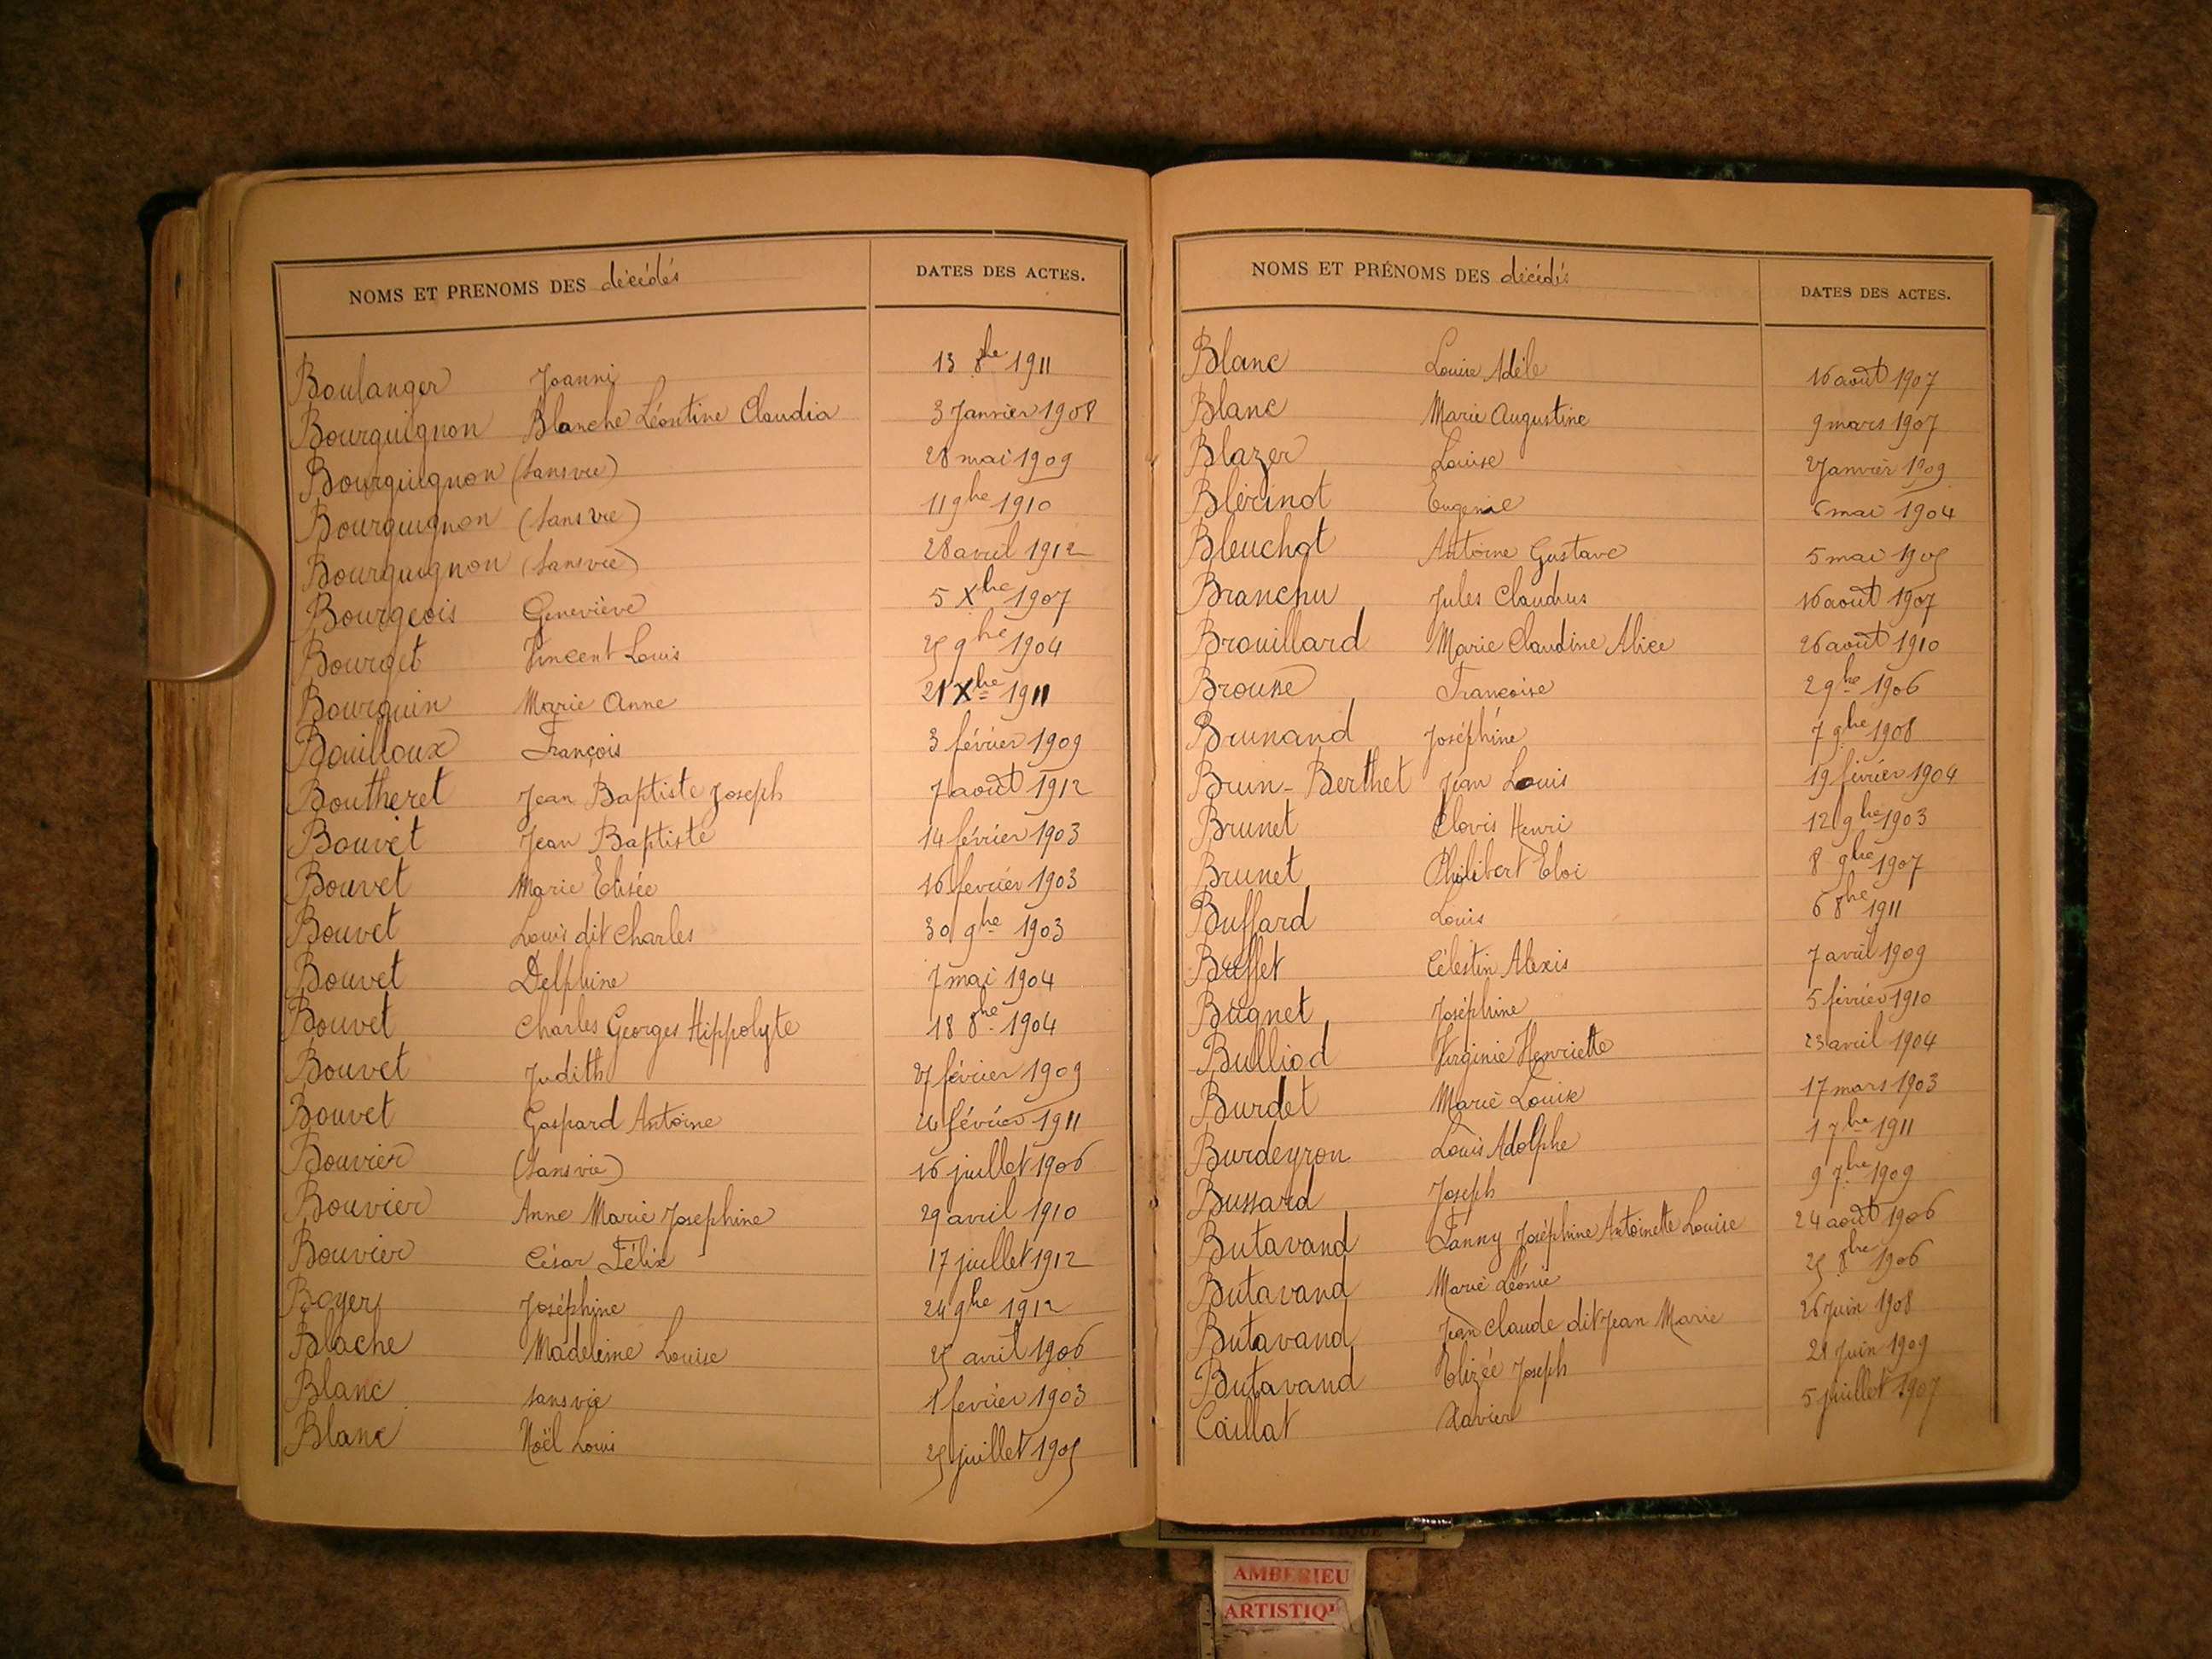 NOMS ET PRENOMS DES décédés DATES DES ACTES.
Boulanger Joanni 13 8bre 1911
Bourguignon Blanche Léontine Claudia 3 Janvier 1908
Bourguignon (sans vie) 28 mai 1909
Bourguignon (sans vie) 11 9bre 1910
Bourguignon (sans vie) 28 avril 1912
Bourgeois Geneviève 5 Xbre 1907
Bourget Vincent Louis 25 9bre 1904
Bourguin Marie Anne 21 Xbre 1911
Bouilloux François 3 février 1909
Boutheret Jean Baptiste Joseph 7 août 1912
Bouvet Jean Baptiste 14 février 1903
Bouvet Marie Elisée 16 fevrier 1903
Bouvet Louis dit Charles 30 9bre 1903
Bouvet Delphine 7 mai 1904
Bouvet Charles Georges Hippolyte 18 8bre 1904
Bouvet Judith 27 février 1909
Bouvet Gaspard Antoine février 1911
Bouvier (sans vie) 16 juillet 1906
Bouvier Anne Marie Josephine 29 avril 1910
Bouvier César Félix 17 juillet 1912
Boyer Joséphine 24 9bre 1912
Blache Madeleine Louise 25 avril 1906
Blanc sans vie 1 fevrier 1903
Blanc Noël Louis 25 juillet 1905
NOMS ET PRÉNOMS DES décédés DATES DES ACTES.
Blanc Louise Adèle 16 août 1907
Blanc Marie Augustine 9 mars 1907
Blazer Louise Janvier 1909
Blérinot Eugenie 6 mai 1904
Bleuchot Antoine Gustave 5 mai 1905
Branchu Jules Claudius 16 août 1907
Brouillard Marie Claudine Alice 26 août 1910
Brousse Françoise 2 9bre 1906
Brunand Joséphine 7 9bre 1908
Brun-Berthet Jean Louis 19 février 1904
Brunet Clovis Henri 12 9bre 1903
Brunet Philibert Eloi 8 9bre 1907
Buffard Louis 6 8bre 1911
Buffet Célestin Alexis 7 avril 1909
Bugnet Joséphine 5 février 1910
Bulliod Virginie Henriette 23 avril 1904
Burdet Marie Louise 17 mars 1903
Burdeyron Louis Adolphe 1 7bre 1911
Bussard Joseph 9 7bre 1909
Butavand Fanny Joséphine Antoinette Louise 24 août 1906
Butavand Marie Léonie 25 8bre 1906
Butavand Jean Claude dit Jean Marie 26 Juin 1908
Butavand Elizée Joseph 21 Juin 1909
Caillat Xavier 5 juillet 1907
AMBERIEU
ARTISTIQU